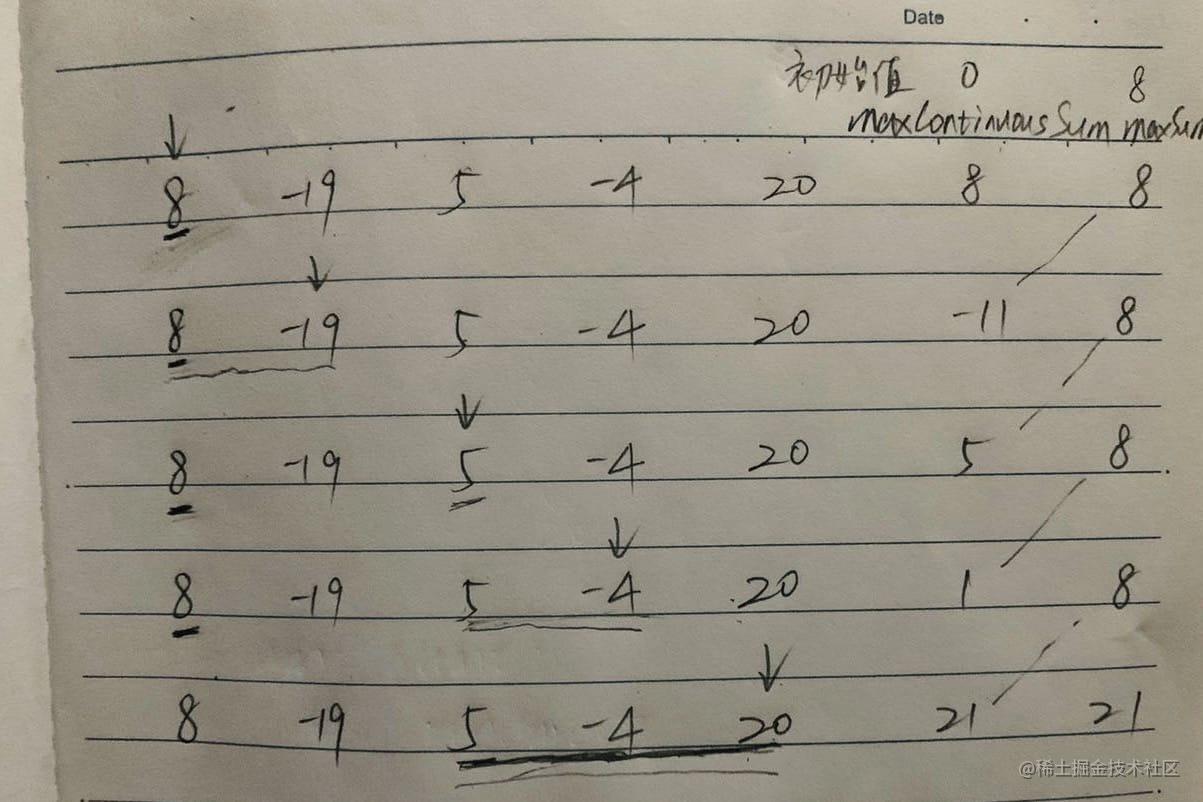 Date
初始值 0 8
maxContinuousSum maxSum
8 -19 5 -4 20 8 8
8 -19 5 -4 20 -11 8
8 -19 5 -4 20 5 8
8 -19 5 -4 20 1 8
8 -19 5 -4 20 21 21
@稀土掘金技术社区